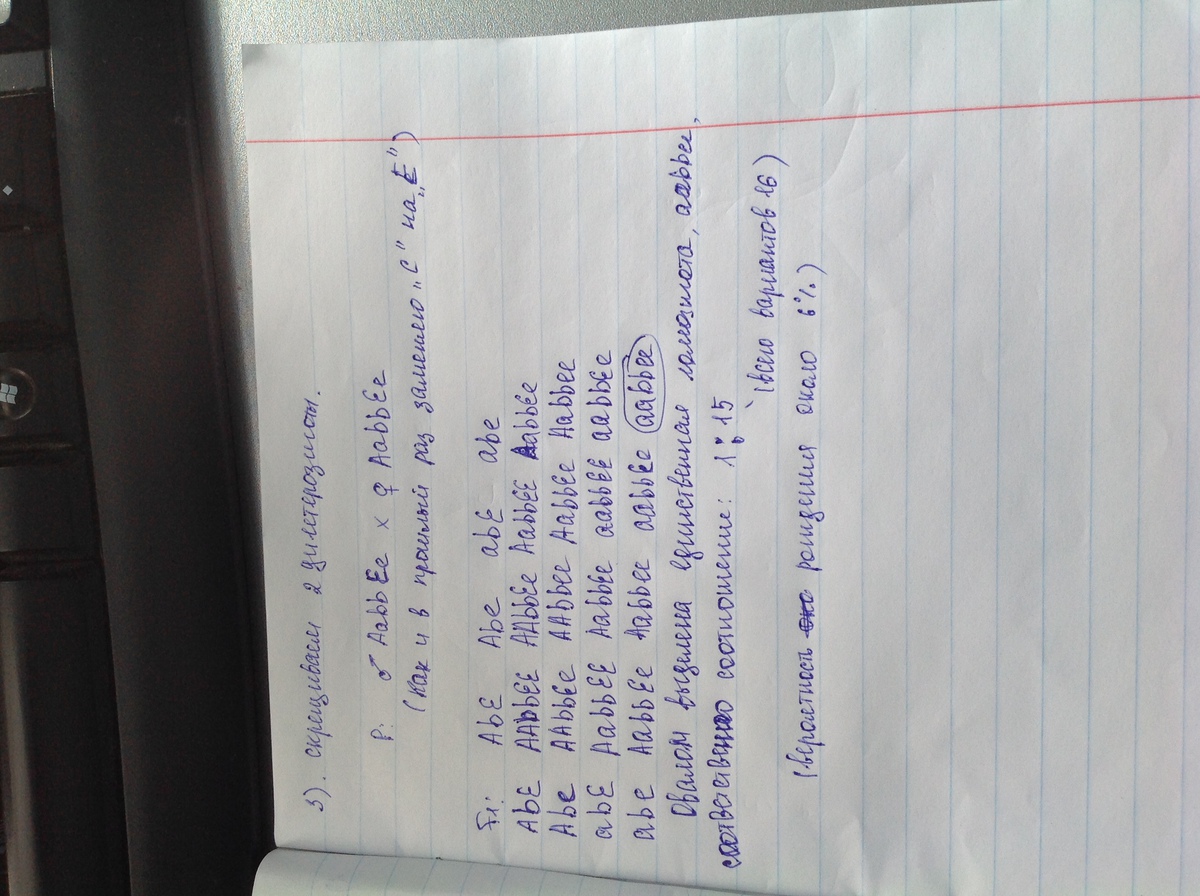 3). скрещиваем 2 дигетерозиготы.
P: ♂ AabbEe x ♀ AabbEe
(как и в прошлый раз заменяю „c" на „E")
F1: AbE Abe abE abe
AbE AAbbEE AAbbEe AabbEE AabbEe
Abe AAbbEe AAbbee AabbEe Aabbee
abE AabbEE AabbEe aabbEE aabbEe
abe AabbEe Aabbee aabbEe aabbee
Овалом выделена единственная гомозигота, aabbee,
соответственно соотношение: 1 : 15
(всего вариантов 16)
(вероятность рождения около 6%)